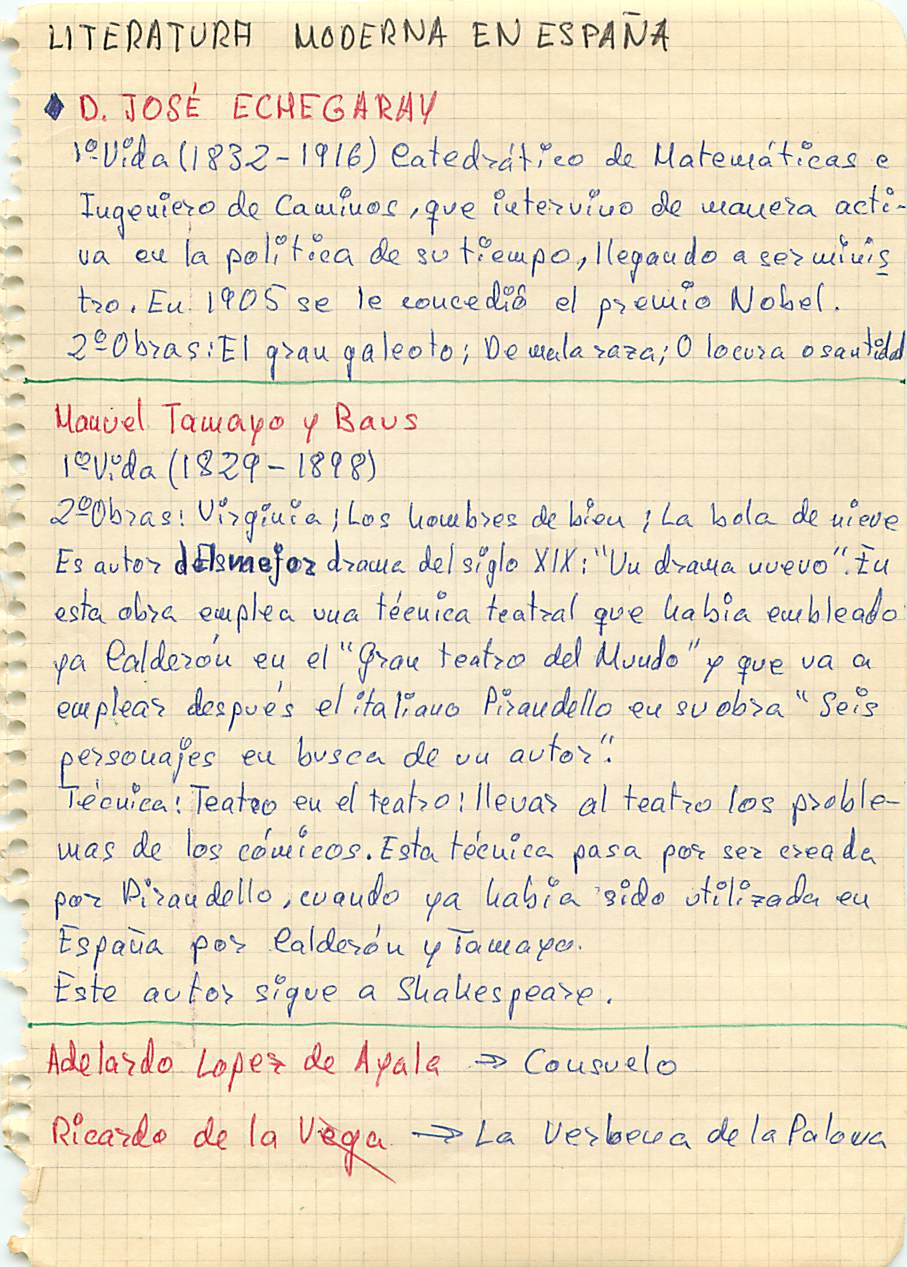 LITERATURA MODERNA EN ESPAÑA
D. JOSÉ ECHEGARAY
1º Vida (1832-1916) Catedrático de Matemáticas e
Ingeniero de Caminos, que intervino de manera acti-
va en la política de su tiempo, llegando a ser minis
tro. En 1905 se le concedió el premio Nobel.
2º Obras: El gran galeoto; De mala raza; O locura o santidad
Manuel Tamayo y Baus
1º Vida (1829-1898)
2º Obras: Virginia; Los hombres de bien; La bola de nieve
Es autor del mejor drama del siglo XIX: "Un drama nuevo". En
esta obra emplea una técnica teatral que habia embleado
ya Calderón en el "Gran teatro del Mundo" y que va a
emplear después el italiano Pirandello en su obra "Seis
personajes en busca de un autor".
Técnica: Teatro en el teatro: llevar al teatro los proble-
mas de los cómicos. Esta técnica pasa por ser creada
por Pirandello, cuando ya había sido utilizada en
España por Calderón y Tamayo.
Este autor sigue a Shakespeare.
Adelardo Lopez de Ayala → Consuelo
Ricardo de la Vega → La Verbena de la Paloma